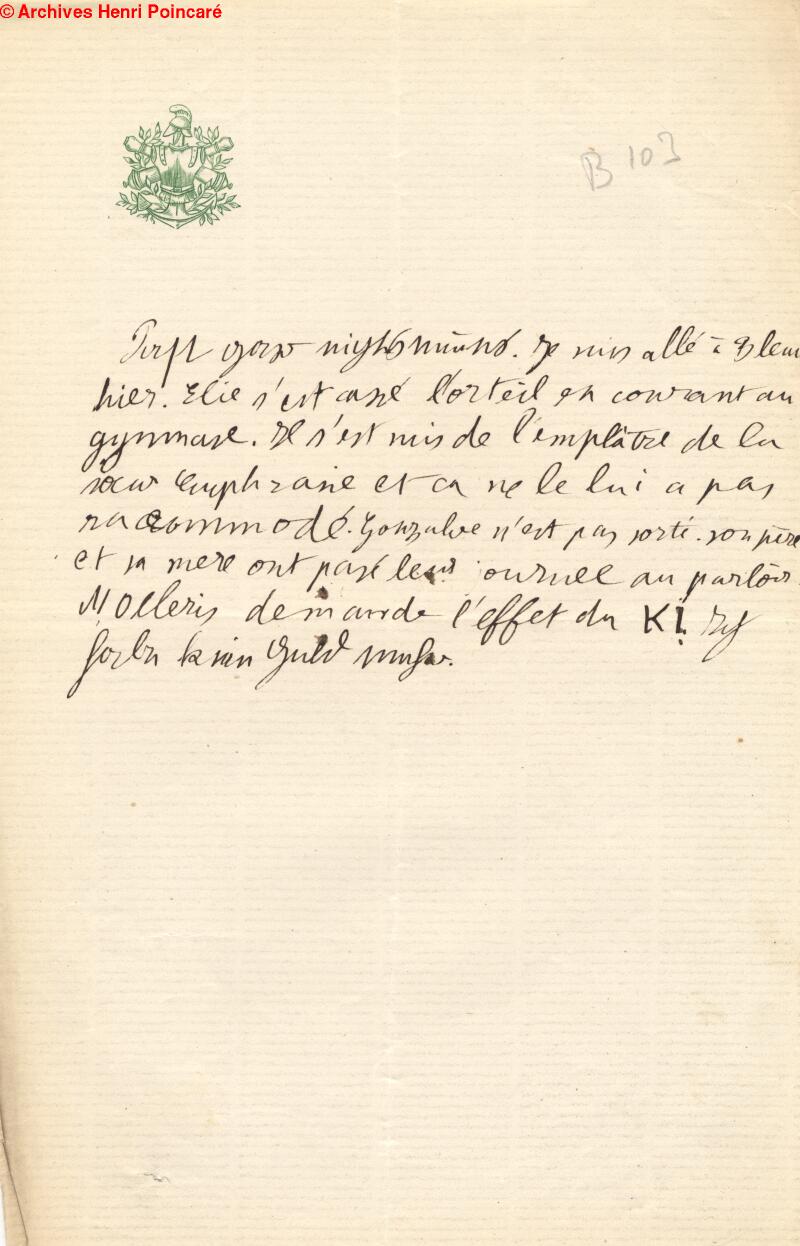 © Archives Henri Poincaré
B 103
Je suis allé à
hier. Elie s'est cassé l'orteil en courant au
gymnase. Il s'est mis de l'emplâtre de la
sœur Emphrasie et ca ne le lui a pas
raccommodé. Gonzalve n'est pas sorti. son père
et sa mere ont passé leur journée au parloir.
demande l'effet du KI